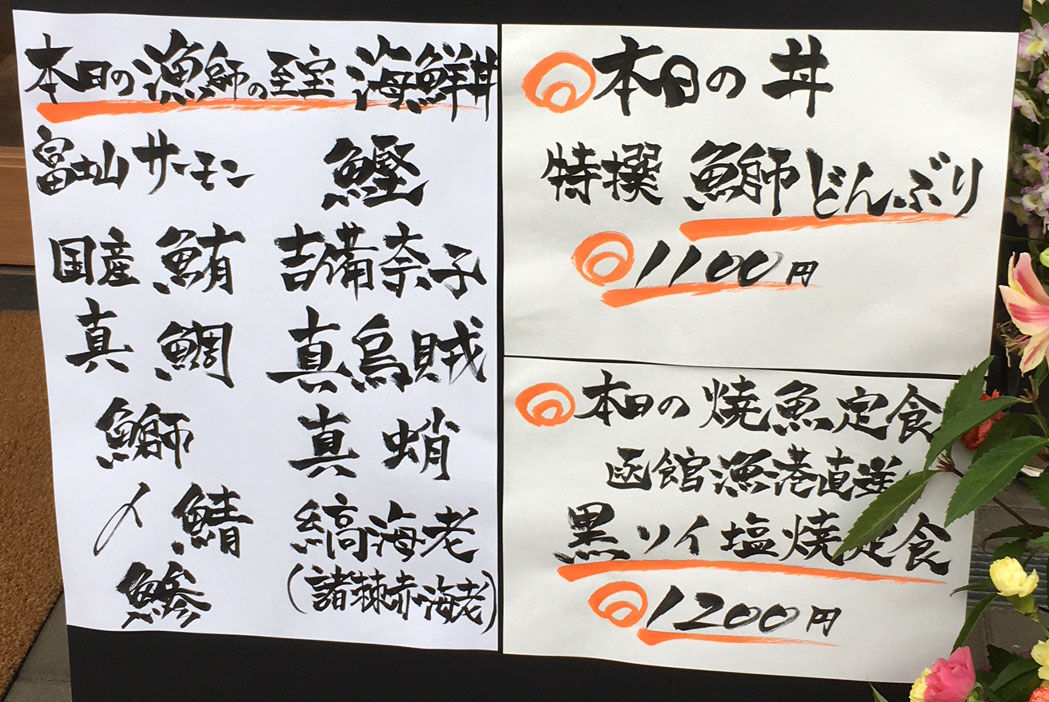 本日の漁師の至宝 海鮮丼
富士山サーモン 鰹
国産 鮪 吉備奈子
真鯛 真烏賊
鰤 真蛸
〆鯖 縞海老
鯵 (諸棘赤海老)
本日の丼
特撰 鰤どんぶり
1100円
本日の焼魚定食
函館漁港直送
黒ソイ塩焼定食
1200円